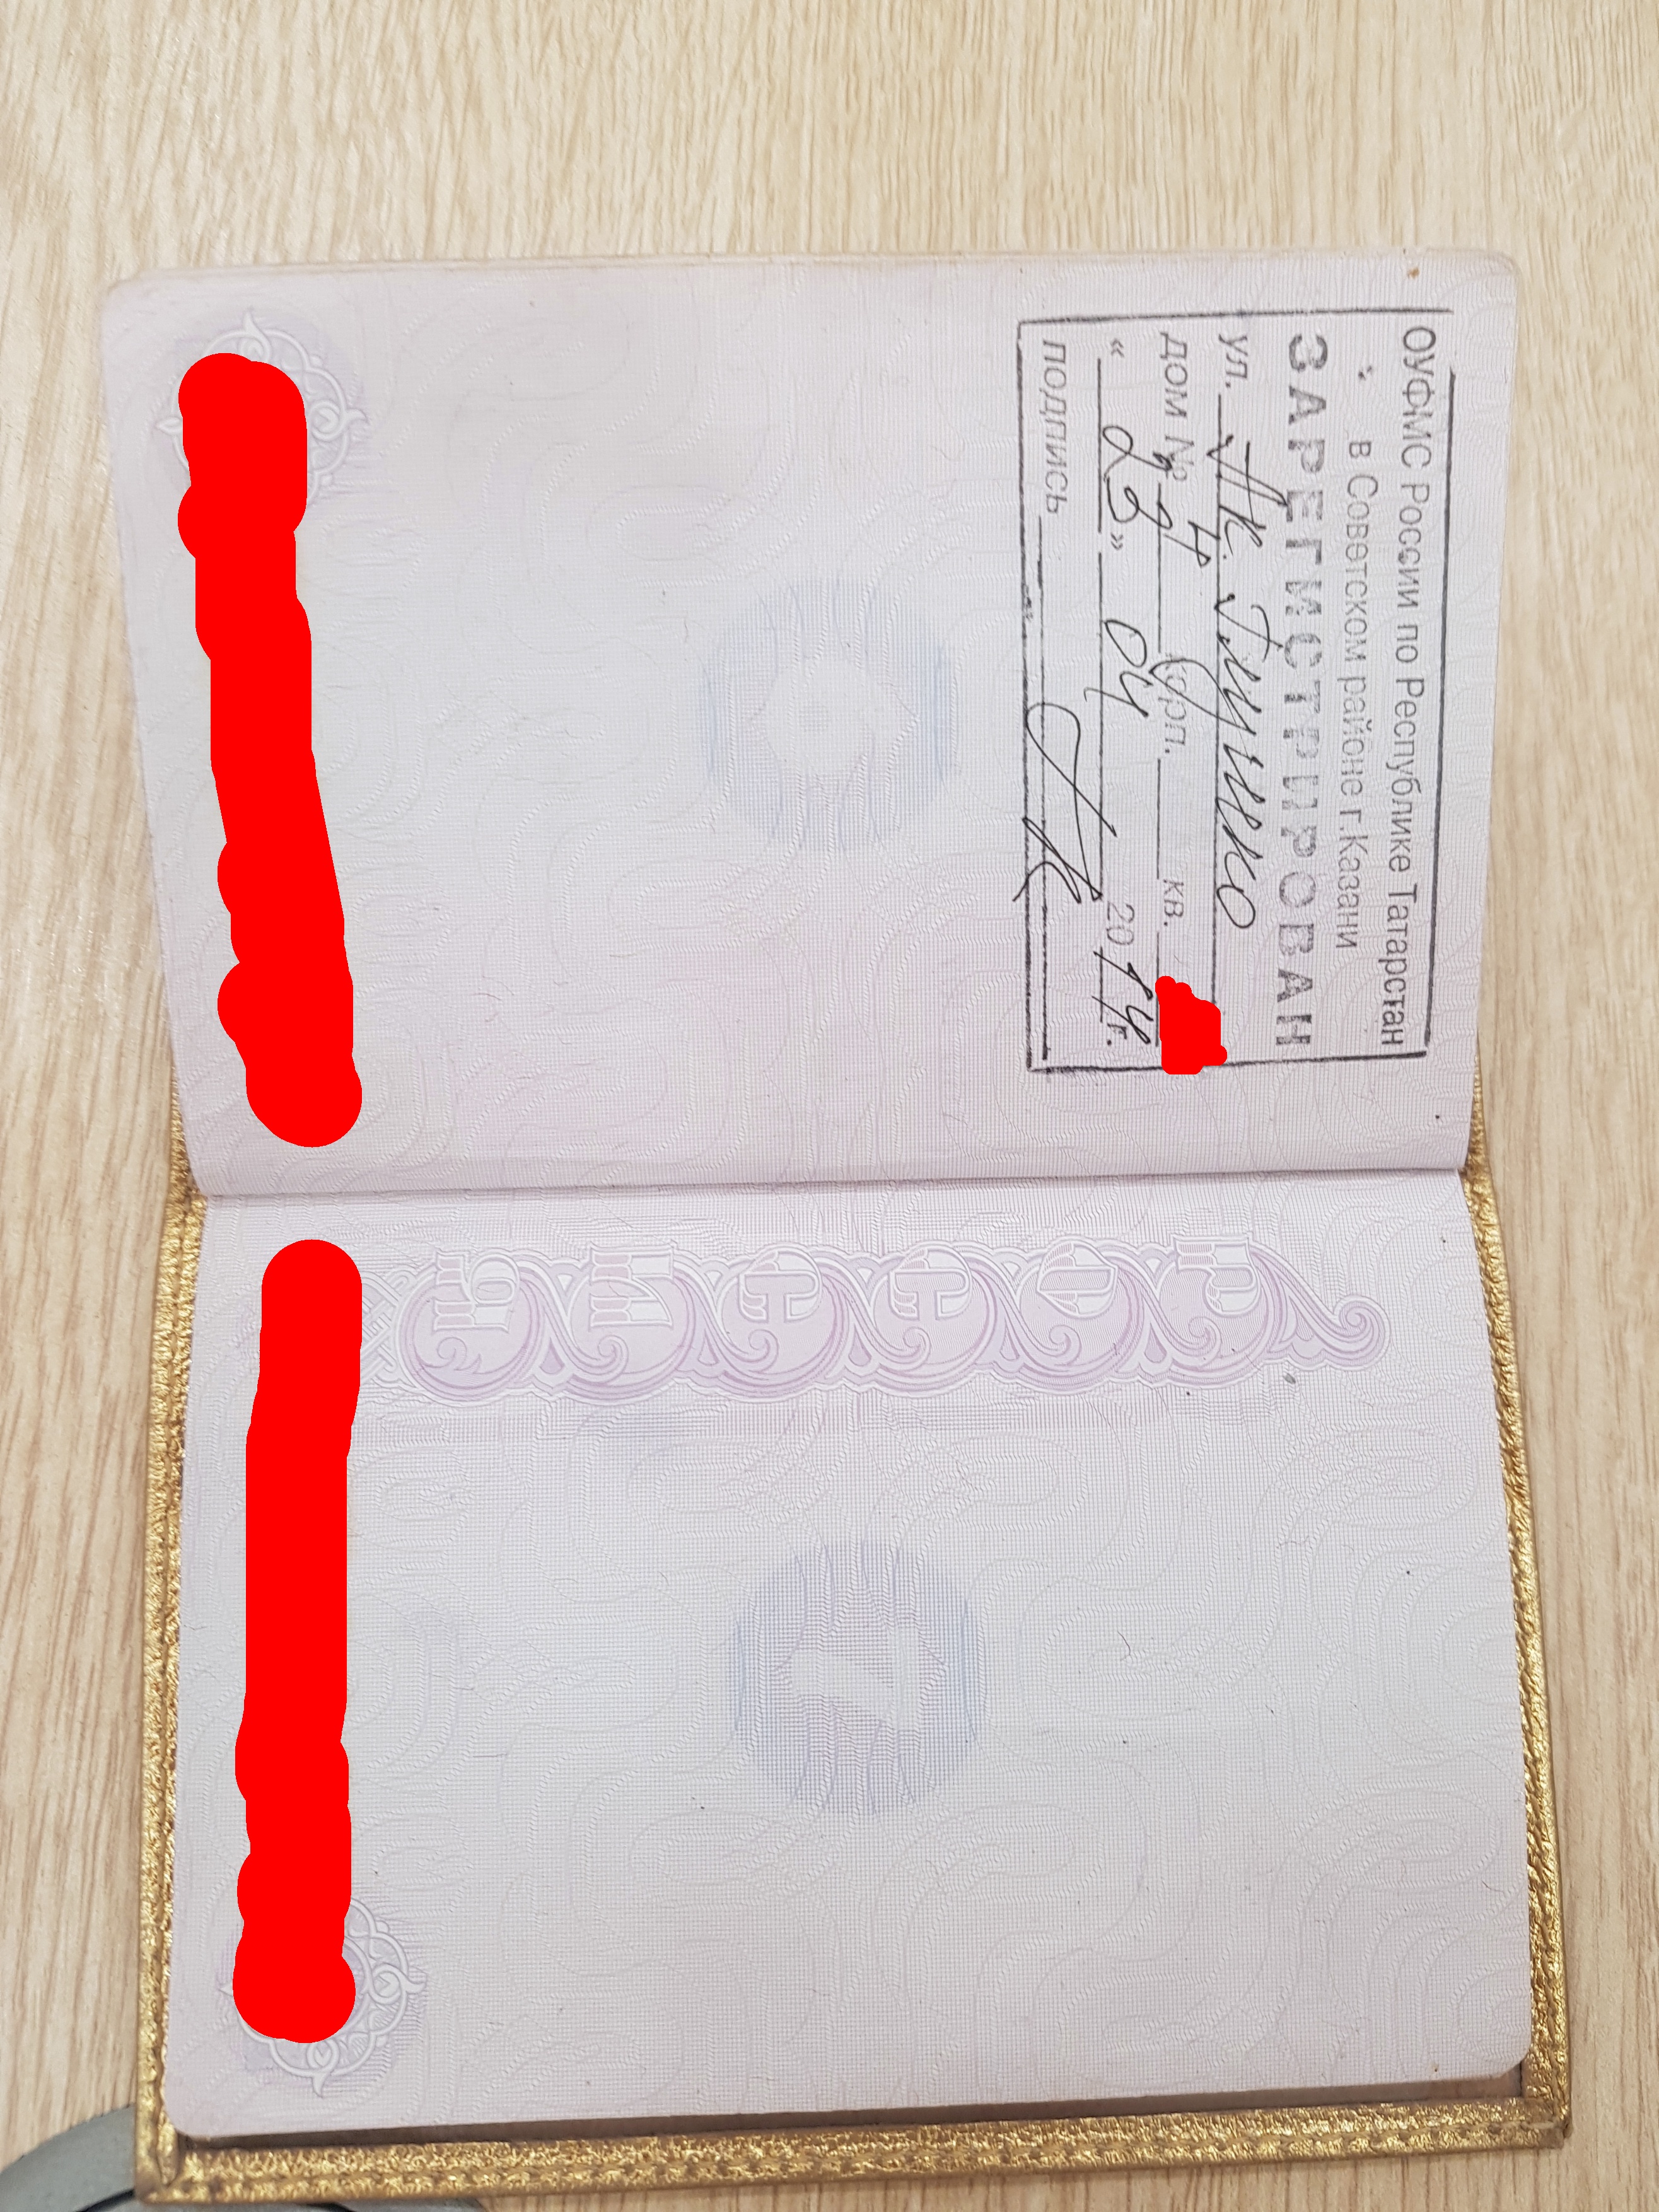 ОУФМС России по Республике Татарстан
в Советском районе г.Казани
ЗАРЕГИСТРИРОВАН
ул. Ак. Глушко
дом № 24 корп. кв.
« 23 » 04 2014 г.
подпись
РОССИЯ